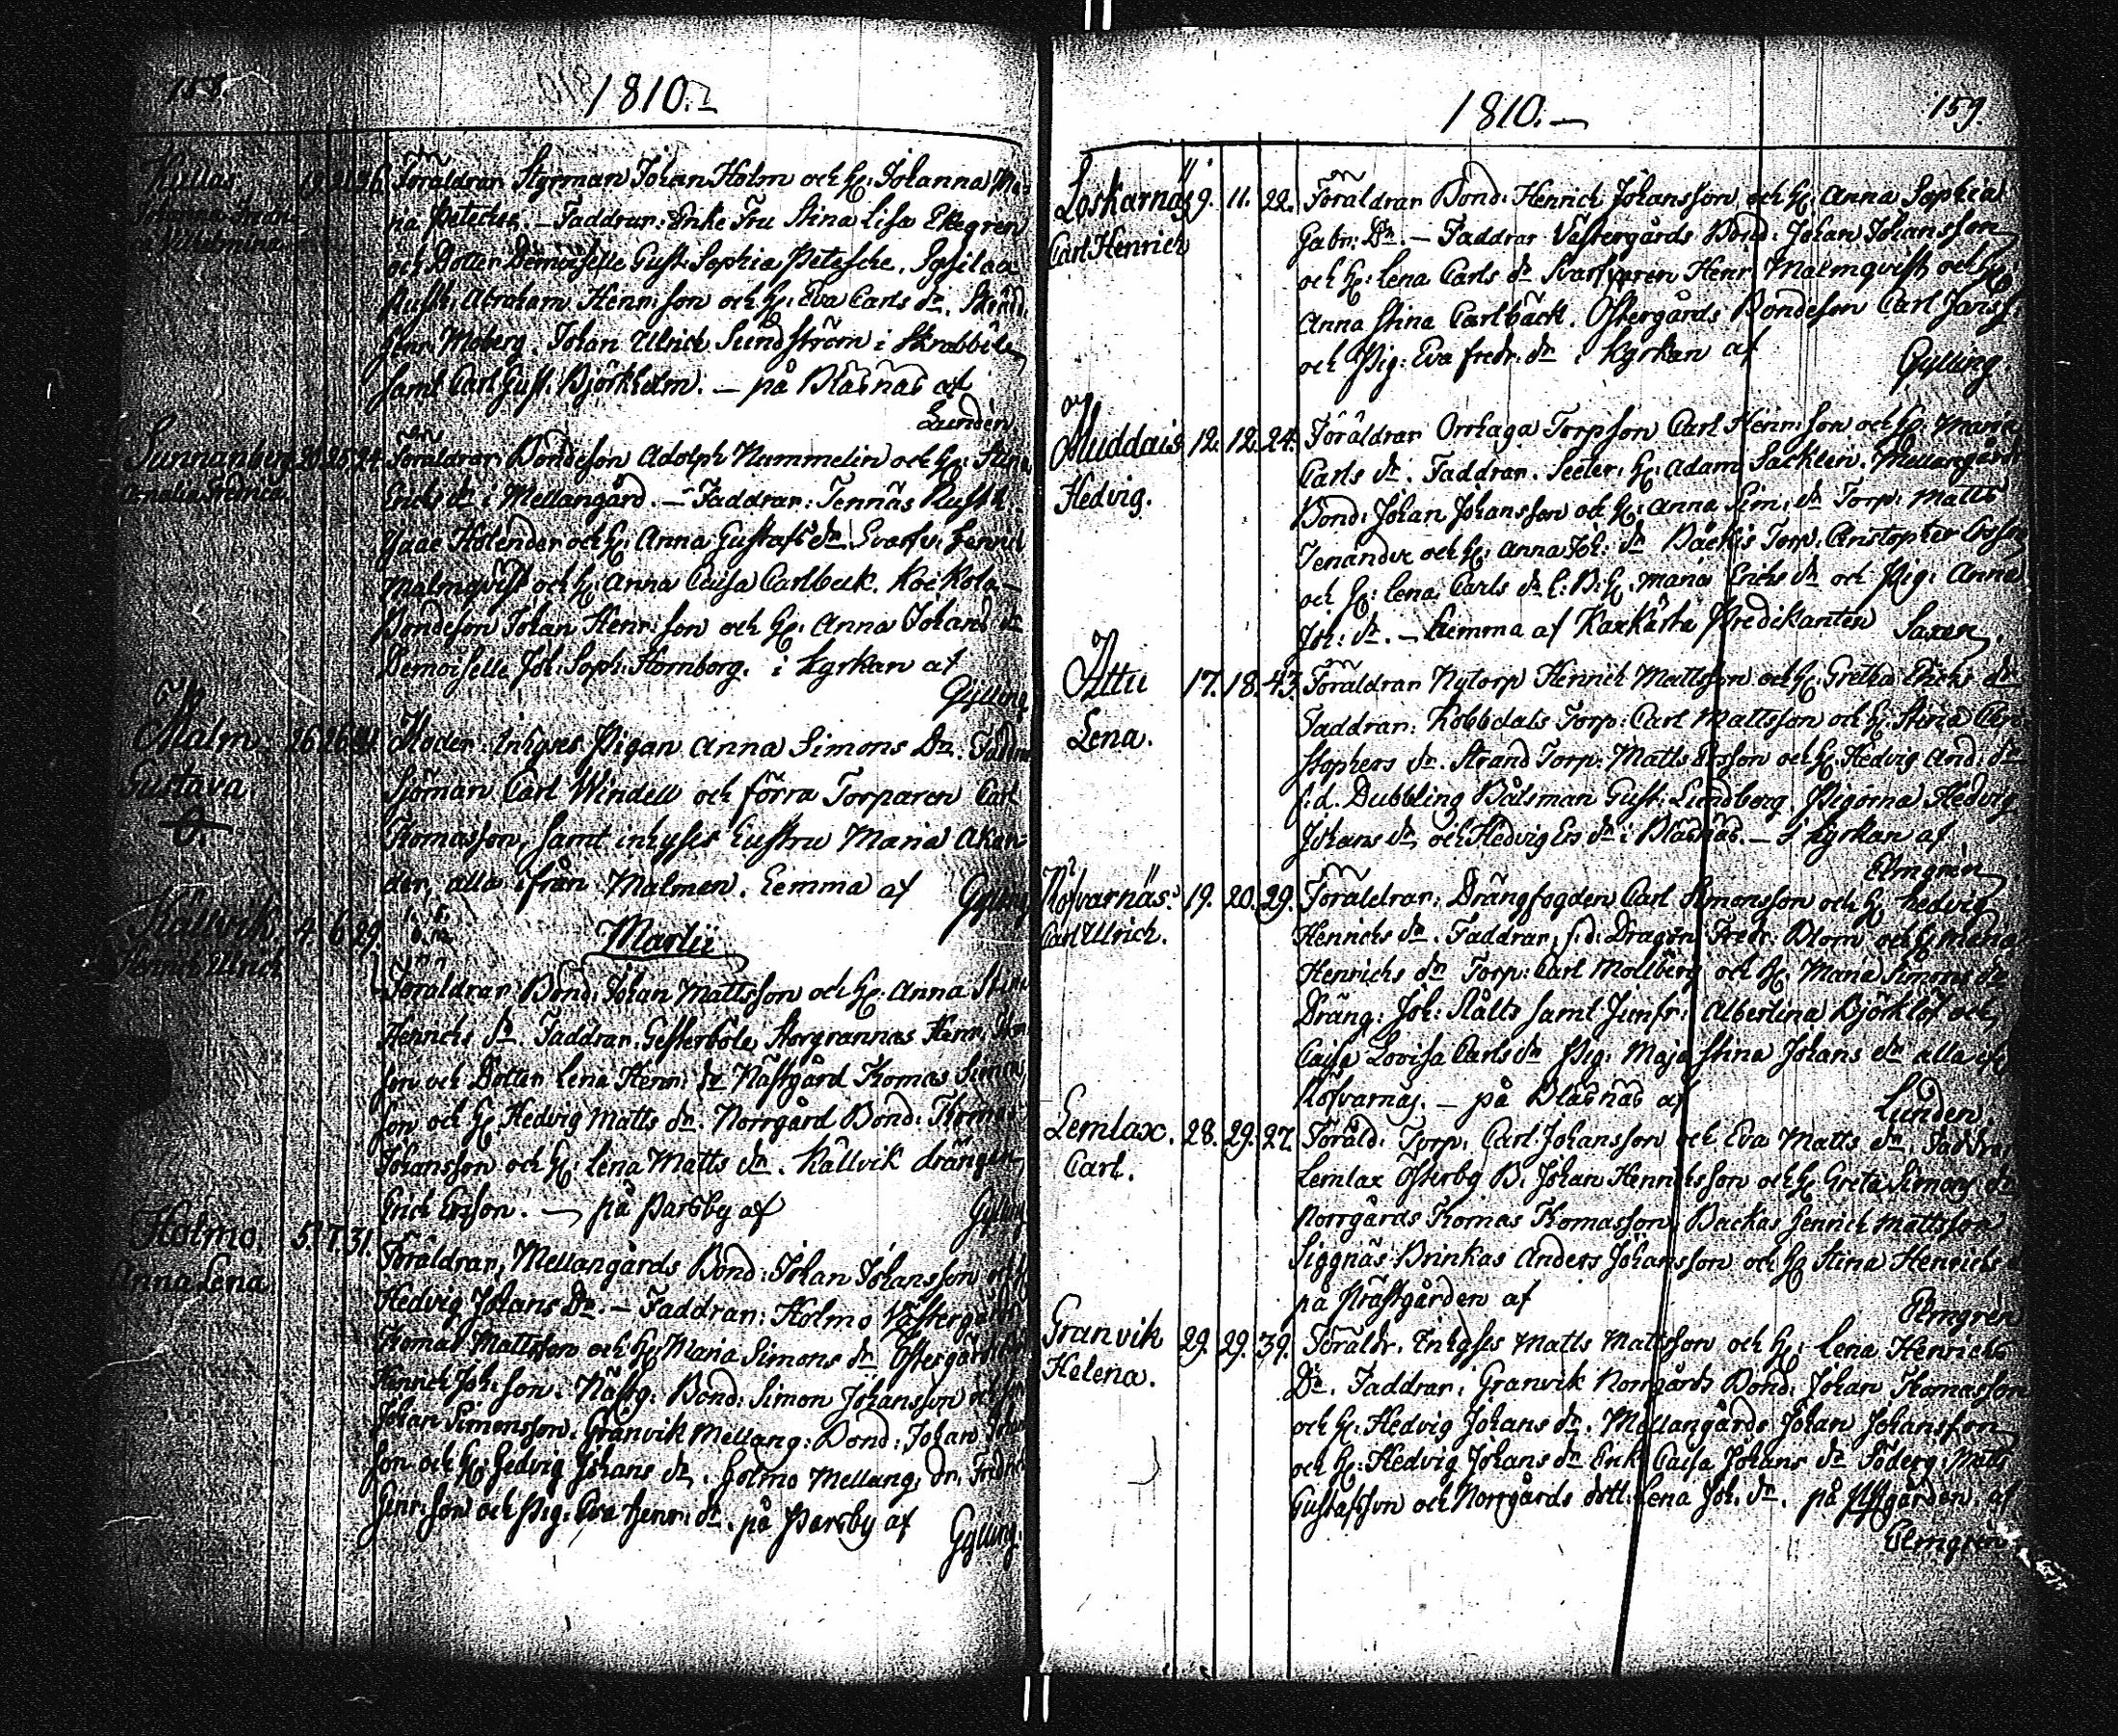 158.
1810.
Föräldrar Styrman Johan Holm och H: Johanna
na Petesche. — Faddrar: Enke Fru Stina Lisa Ekegren
och Dotter Demoiselle Gust: Sophia Petesche.
Rusth: Abraham Henr: son och H: Eva Carls dr.
Henr: Moberg. Johan Ulrich Sundström i Skräbböle
samt Carl Gust: Björkholm. — på Bläsnäs af
Lunden
Sunnanberg 24.
Amalia Fredrica.
Föräldrar: Bondeson Adolph Nummelin och H: Stina
Erichs dr i Mellangård. — Faddrar: Tennäs Rusth:
Isaac Helender och H: Anna Gustafs dr. Svarfv: Henric
Malmqvist och H: Anna Caisa Carlbeck. Koekola
Bondeson Johan Henr: son och H: Anna Johans dr
Demoiselle Joh: Soph: Hornborg. i kyrkan af
Gylling
Malm. 26. 26.
Gustava.
Moder: Inhyses Pigan Anna Simons Dr.
Sjöman Carl Windell och förra Torparen Carl
Thomasson, samt inhyses hustru Maria
der, alla ifrån Malmen. hemma af Gylling
Martii
Källvik. 4. 6. 29.
Henric Ulrich
Föräldrar: Bond: Johan Mattsson och H: Anna Stina
Henrichs dr. Faddrar: Gesterböle Storgrannas Henr:
son och Dotter Lena Henr: dr Nästgård Thomas Simons
son och H: Hedvig Matts dr. Norrgård Bond: Thomas
Johansson och H: Lena Matts dr. Källvik drängen
Erich Erson. — på Parsby af
Gylling
Holmo. 5. 7. 31.
Anna Lena
Föräldrar, Mellangårds Bond: Johan Johansson och H:
Hedvig Johans Dr. — Faddrar: Holmo Västergårds
Thomas Mattsson och H: Maria Simons dr. Östergårds
Henrich Joh: son. Nästg: Bond: Simon Johansson och
Johan Simonsson. Granvik Mellang: Bond: Johan
son och H: Hedvig Johans dr. Holmo Mellang: dr. Fredric
Henr: son och Pig: Eva Henr: dr. på Parsby af
Gylling.
1810. —
159.
Loskarnäs 9. 11. 22.
Carl Henrich
Föräldrar Bond: Henrich Johansson och H: Anna Sophia
Gabr: Dr. — Faddrar Västergårds Bond: Johan Johansson
och H: Lena Carls dr Svarfvaren Henr: Malmqvist och H:
Anna Stina Carlbäck. Östergårds Bondeson Carl Janss:
och Pig: Eva Fredr: dr i Kyrkan af
Gylling.
Muddais 12. 12. 24.
Hedvig.
Föräldrar Orrhaga Torpson Carl Henr: son och H: Maria
Carls dr. Faddrar. H: Adam Mellangårds
Bond: Johan Johansson och H: Anna Sim: dr Torp: Matts
Tenander och H: Anna Joh: dr Bäckis Torp:
och H: Lena Carls dr Maria Erichs dr och Pig: Anna
Joh: dr. — hemma af Kaxkärta Predikanten Saxen.
Attu 17. 18. 43.
Lena.
Föräldrar Nytorp Henrich Mattsson och H: Gretha Erichs dr
Faddrar: Kobbdals Torp: Carl Mattsson och H: Stina
stophers dr. Strand Torp: Matts Ersson och H: Hedvig And: dr
f: d. Dubbling Båtsman Gust: Lundberg. Pigorna Hedvig
Johans dr, och Hedvig Ers dr i Bläsnäs. — i kyrkan af
Elmgren
Rofvarnäs. 19. 20. 29.
Carl Ulrich.
Föräldrar: Drängfogden Carl Simonsson och H: Hedvig
Henrichs dr. Faddrar: f: d: Dragon Fredr: Blom och H: Maria
Henrichs dr Torp: Carl Mollberg och H: Maria Simons dr
Dräng: Joh: Stålts samt Jumfr: Albertina Björklöf och
Caisa Lovisa Carls dr Pig: Maja Stina Johans dr alla
Rofvarnäs. — på Bläsnäs af
Lunden.
Lemlax. 28. 29. 27.
Carl.
Föräld: Torp: Carl Johansson och Eva Matts dr. Faddrar
Lemlax Österby B: Johan Henrichsson och H: Greta Simons dr
Norrgårds Thomas Thomasson, Backas Henrich Mattsson
Siggnäs Brinkas Anders Johansson och H: Stina Henrichs
på Prästgården af
Elmgren
Granvik 29. 29. 39.
Helena.
Föräldr: Inhyses Matts Mattsson och H: Lena Henrichs
Dr. Faddrar: Granvik Norrgårds Bond: Johan Thomasson
och H: Hedvig Johans dr. Mellangårds Johan Johansson
och H: Hedvig Johans dr Enk: Caisa Johans dr Söderg: Matts
Gustafsson och Norrgårds dott: Lena Joh: dr. på Pstgården. af
Elmgren